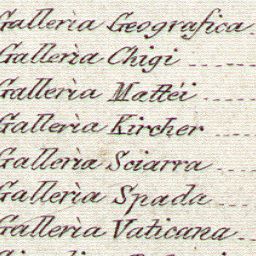 Galleria Geografica
Galleria Chigi
Galleria Mattei
Galleria Kircher
Galleria Sciarra
Galleria Spada
Galleria Vaticana